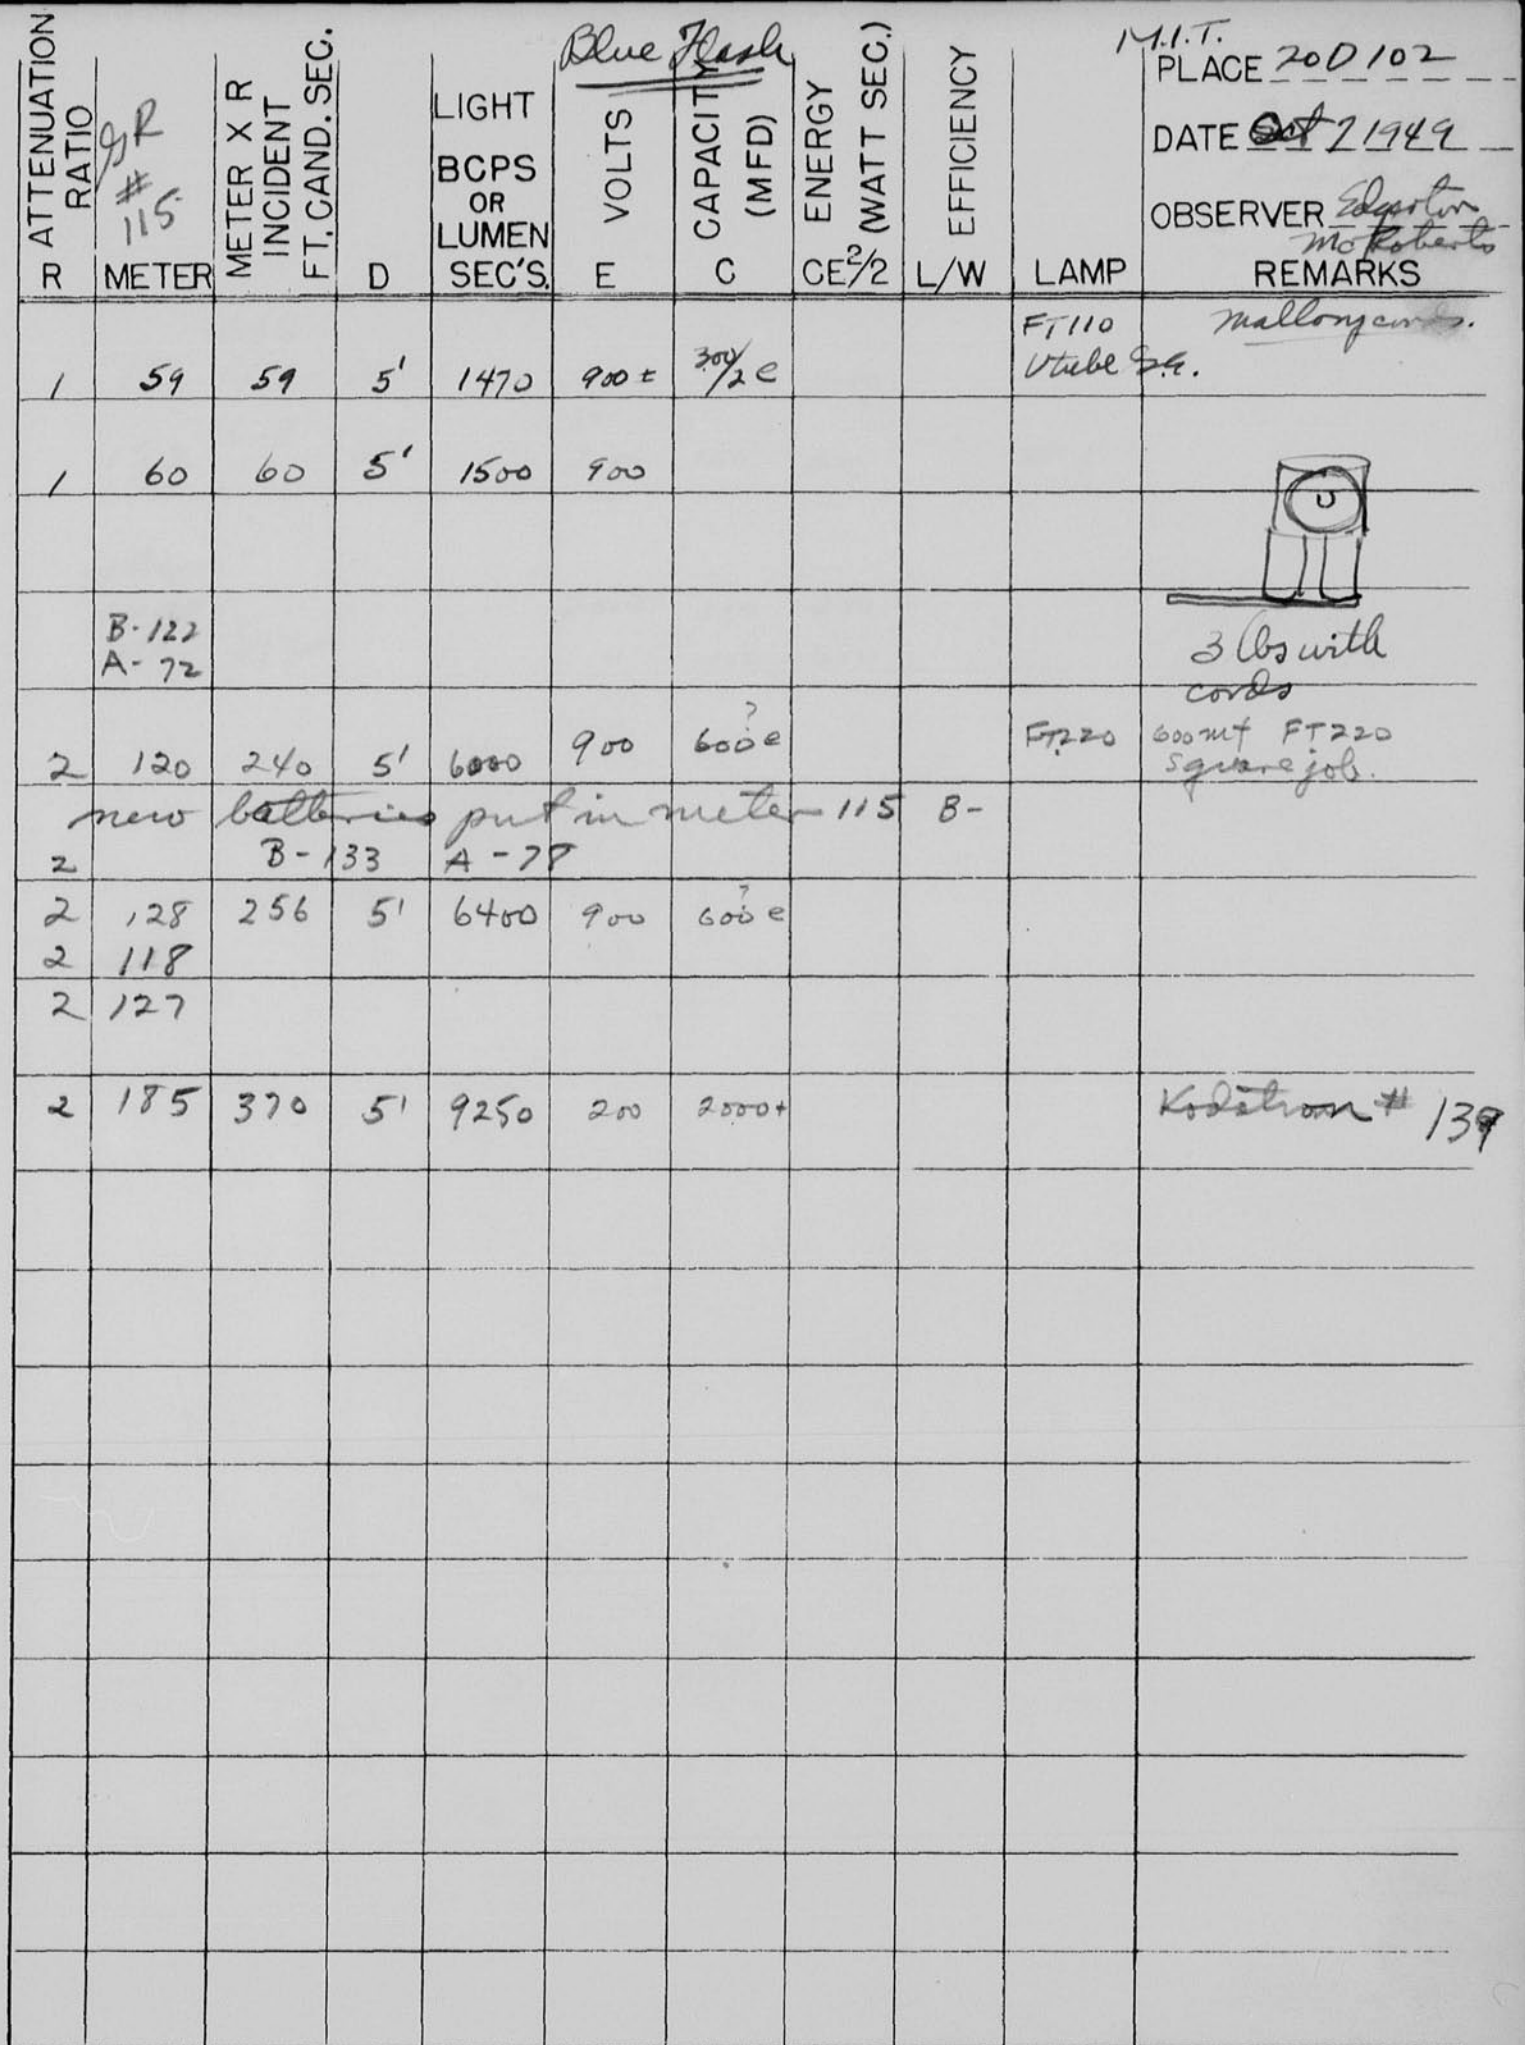 Blue Flash
M.I.T.
PLACE 20D102
DATE Oct 7 1949
OBSERVER Edgerton
McRoberts
ATTENUATION RATIO R
GR # 115 METER
METER X R INCIDENT FT. CAND. SEC.
D
LIGHT BCPS OR LUMEN SEC'S.
VOLTS E
CAPACITY (MFD) C
ENERGY (WATT SEC.) CE²/2
EFFICIENCY L/W
LAMP
REMARKS
FT110 Mallory
1 59 59 5' 1470 900± 300/2 e Utube
1 60 60 5' 1500 900
U
B-122
A-72
3 lbs with
cords
2 120 240 5' 6000 900 600 e ? FT220 600 mf FT220
Square job.
new batteries put in meter 115 B-
2 B-133 A-78
2 128 256 5' 6400 900 600 e ?
2 118
2 127
2 185 370 5' 9250 200 2000+ Kodatron # 139